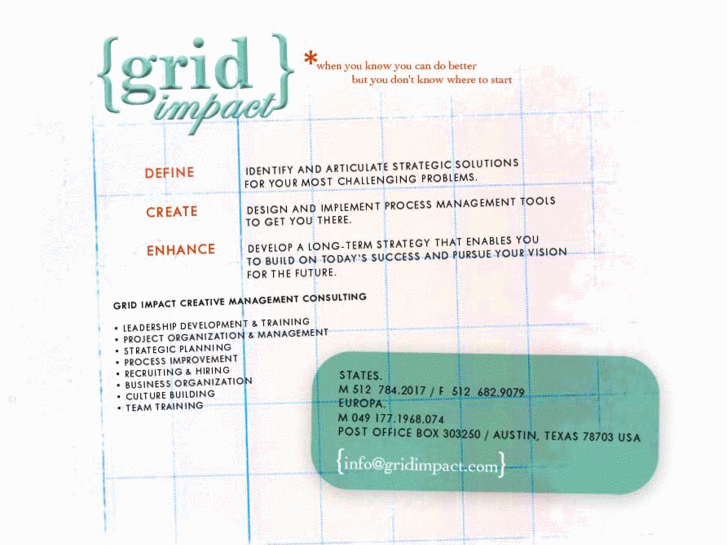 {grid}
impact
*when you know you can do better
but you don't know where to start
DEFINE
IDENTIFY AND ARTICULATE STRATEGIC SOLUTIONS
FOR YOUR MOST CHALLENGING PROBLEMS.
CREATE
DESIGN AND IMPLEMENT PROCESS MANAGEMENT TOOLS
TO GET YOU THERE.
ENHANCE
DEVELOP A LONG-TERM STRATEGY THAT ENABLES YOU
TO BUILD ON TODAY'S SUCCESS AND PURSUE YOUR VISION
FOR THE FUTURE.
GRID IMPACT CREATIVE MANAGEMENT CONSULTING
• LEADERSHIP DEVELOPMENT & TRAINING
• PROJECT ORGANIZATION & MANAGEMENT
• STRATEGIC PLANNING
• PROCESS IMPROVEMENT
• RECRUITING & HIRING
• BUSINESS ORGANIZATION
• CULTURE BUILDING
• TEAM TRAINING
STATES.
M 512 784.2017 / F 512 682.9079
EUROPA.
M 049 177.1968.074
POST OFFICE BOX 303250 / AUSTIN, TEXAS 78703 USA
{info@gridimpact.com}